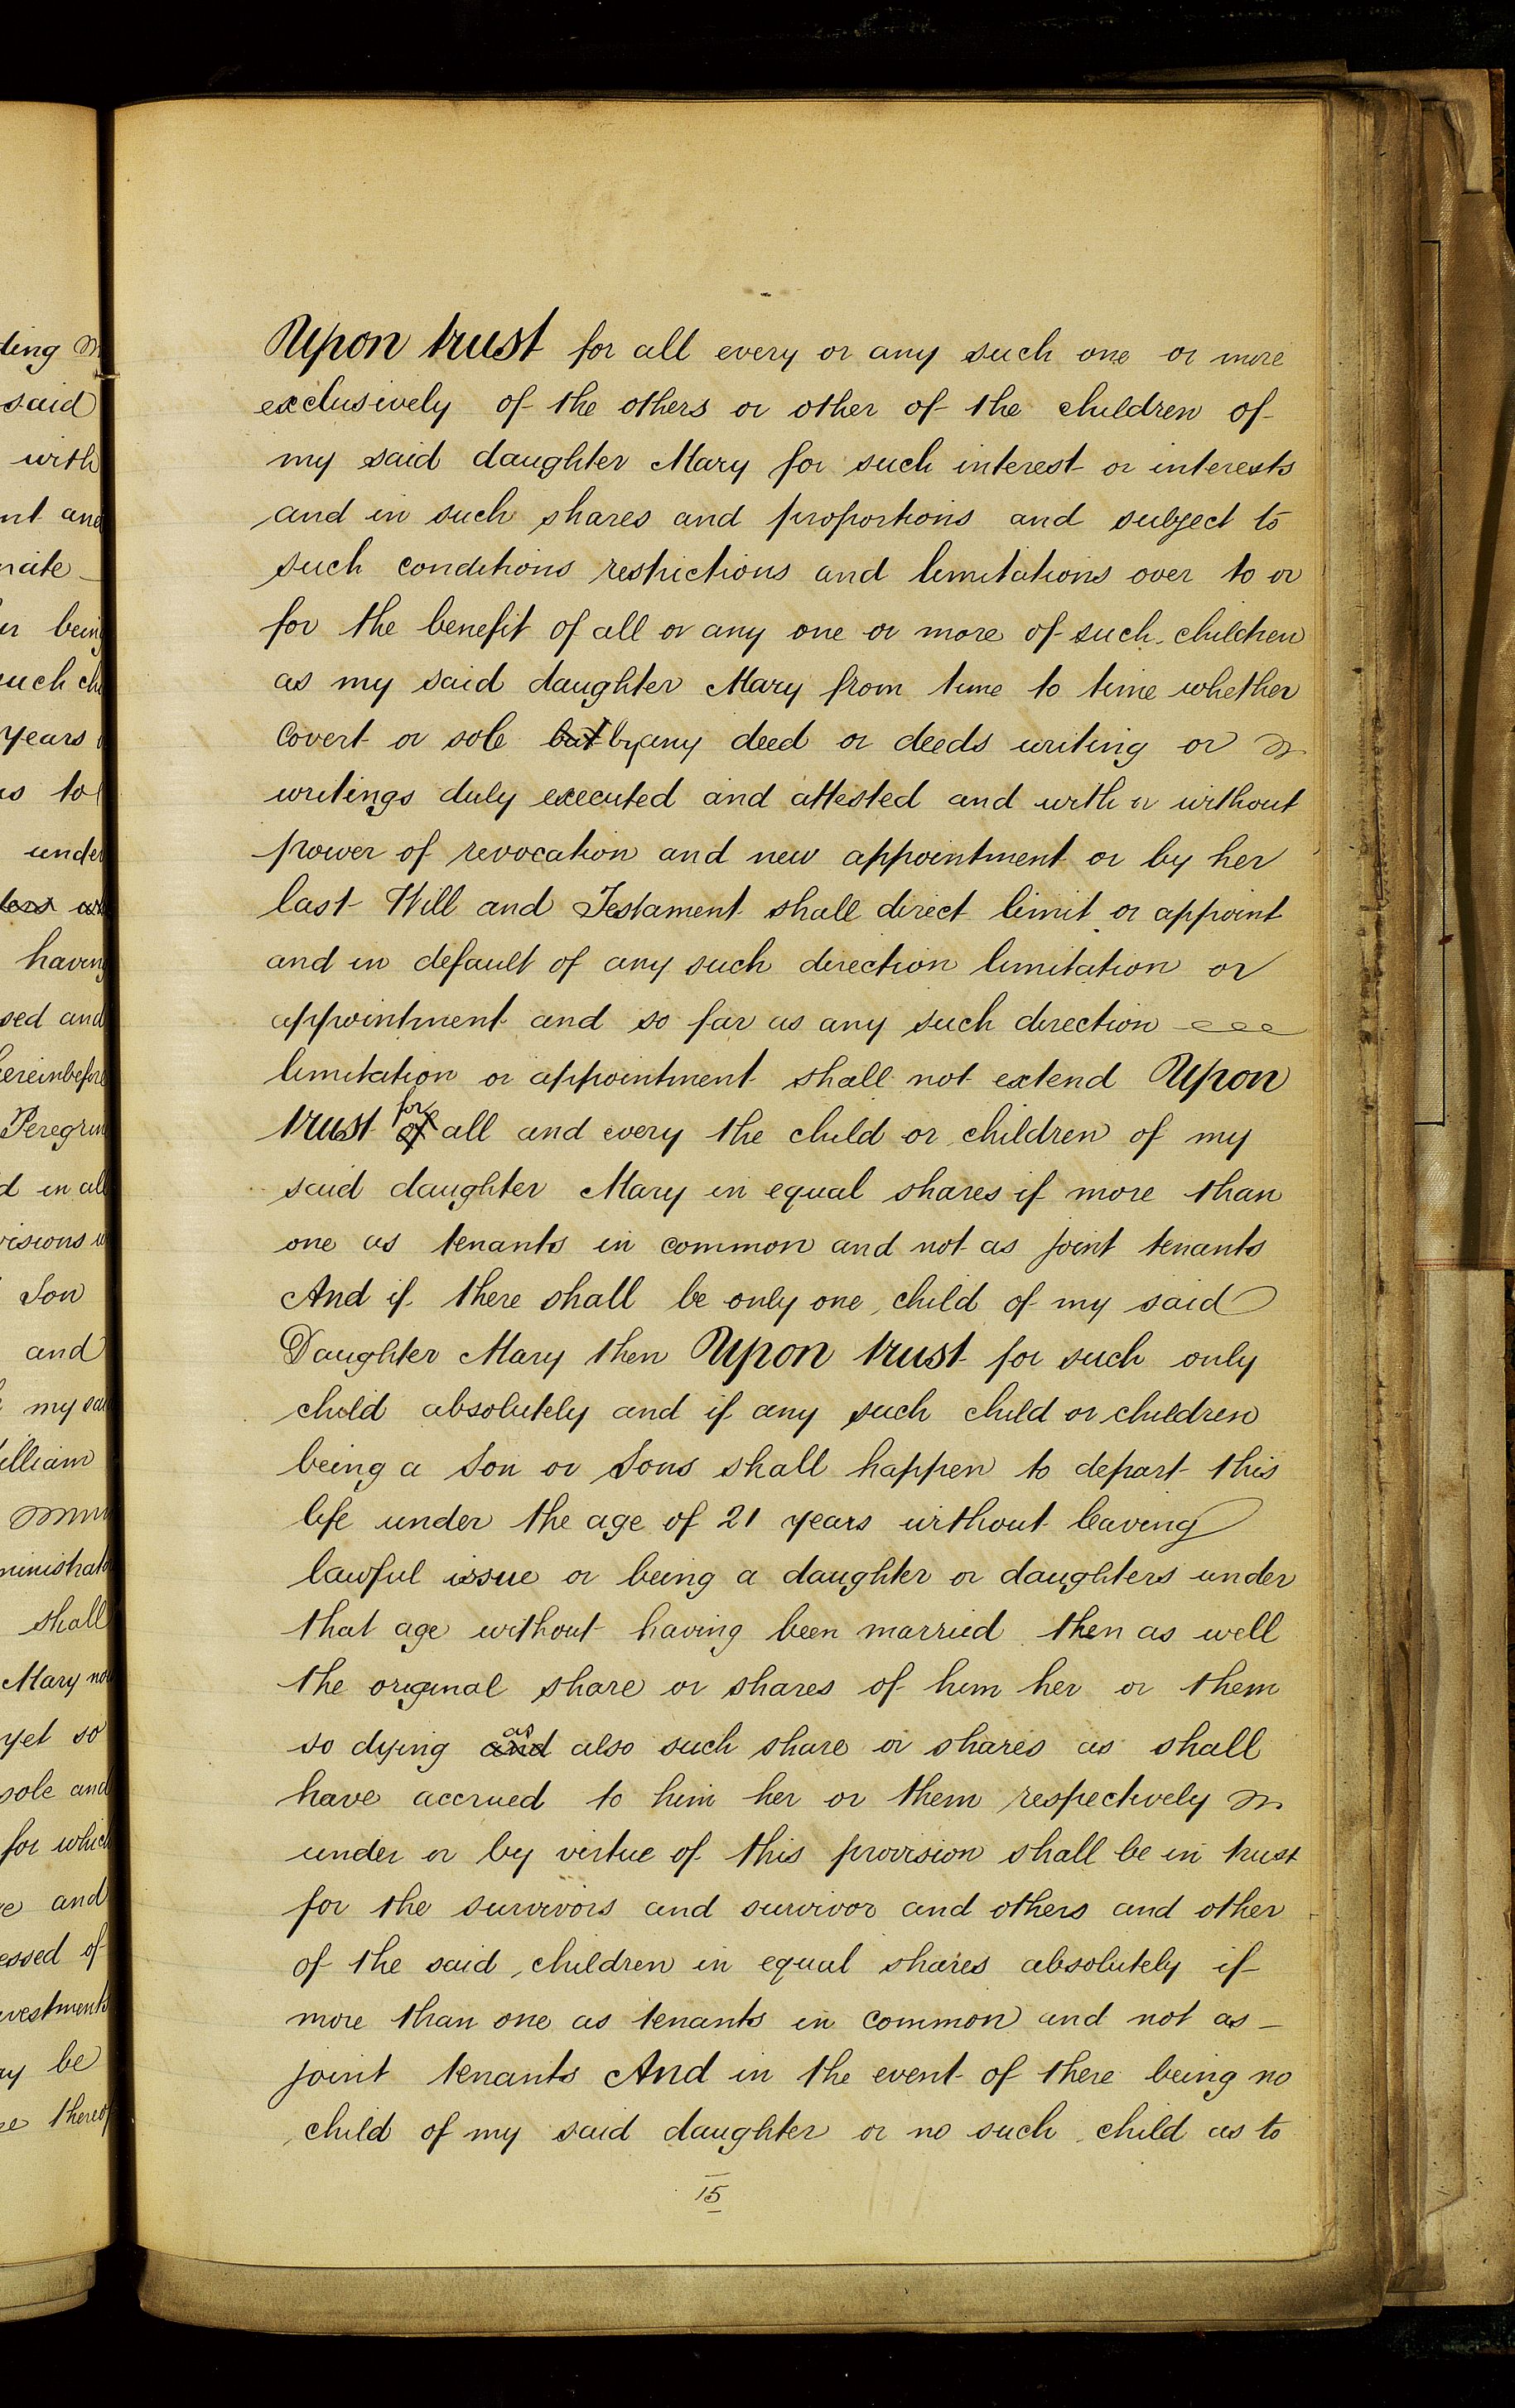 Upon trust for all every or any such one or more
exclusively of the others or other of the children of
my said daughter Mary for such interest or interests
and in such shares and proportions and subject to
such conditions restrictions and limitations over to or
for the benefit of all or any one or more of such children
as my said daughter Mary from time to time whether
Covert or sole but by any deed or deeds writing or
writings duly executed and attested and with or without
power of revocation and new appointment or by her
last Will and Testament shall direct limit or appoint
and in default of any such direction limitation or
appointment and so far as any such direction
limitation or appointment shall not extend Upon
trust of for all and every the child or children of my
said daughter Mary in equal shares if more than
one as tenants in common and not as joint tenants
And if there shall be only one child of my said
Daughter Mary then Upon trust for such only
child absolutely and if any such child or children
being a Son or Sons shall happen to depart this
life under the age of 21 years without leaving
lawful issue or being a daughter or daughters under
that age without having been married then as well
the original share or shares of him her or them
so dying and as also such share or shares as shall
have accrued to him her or them respectively
under or by virtue of this provision shall be in trust
for the survivors and survivor and others and other
of the said children in equal shares absolutely if
more than one as tenants in common and not as
joint tenants And in the event of there being no
child of my said daughter or no such child as to
15